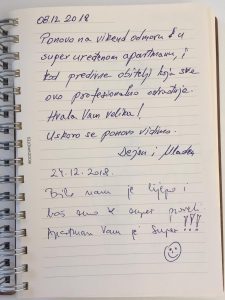 08.12.2018
Ponovo na vikend odmoru u
super uređenom apartmanu, i
kod predivne obitelji koja sve
ovo profesionalno odrađuje.
Hvala Vam velika!
Uskoro se ponovo vidimo.
Dejan i Mladen
24.12.2018.
Bilo nam je lijepo i
baš smo se super proveli
Apartman Vam je super !!!